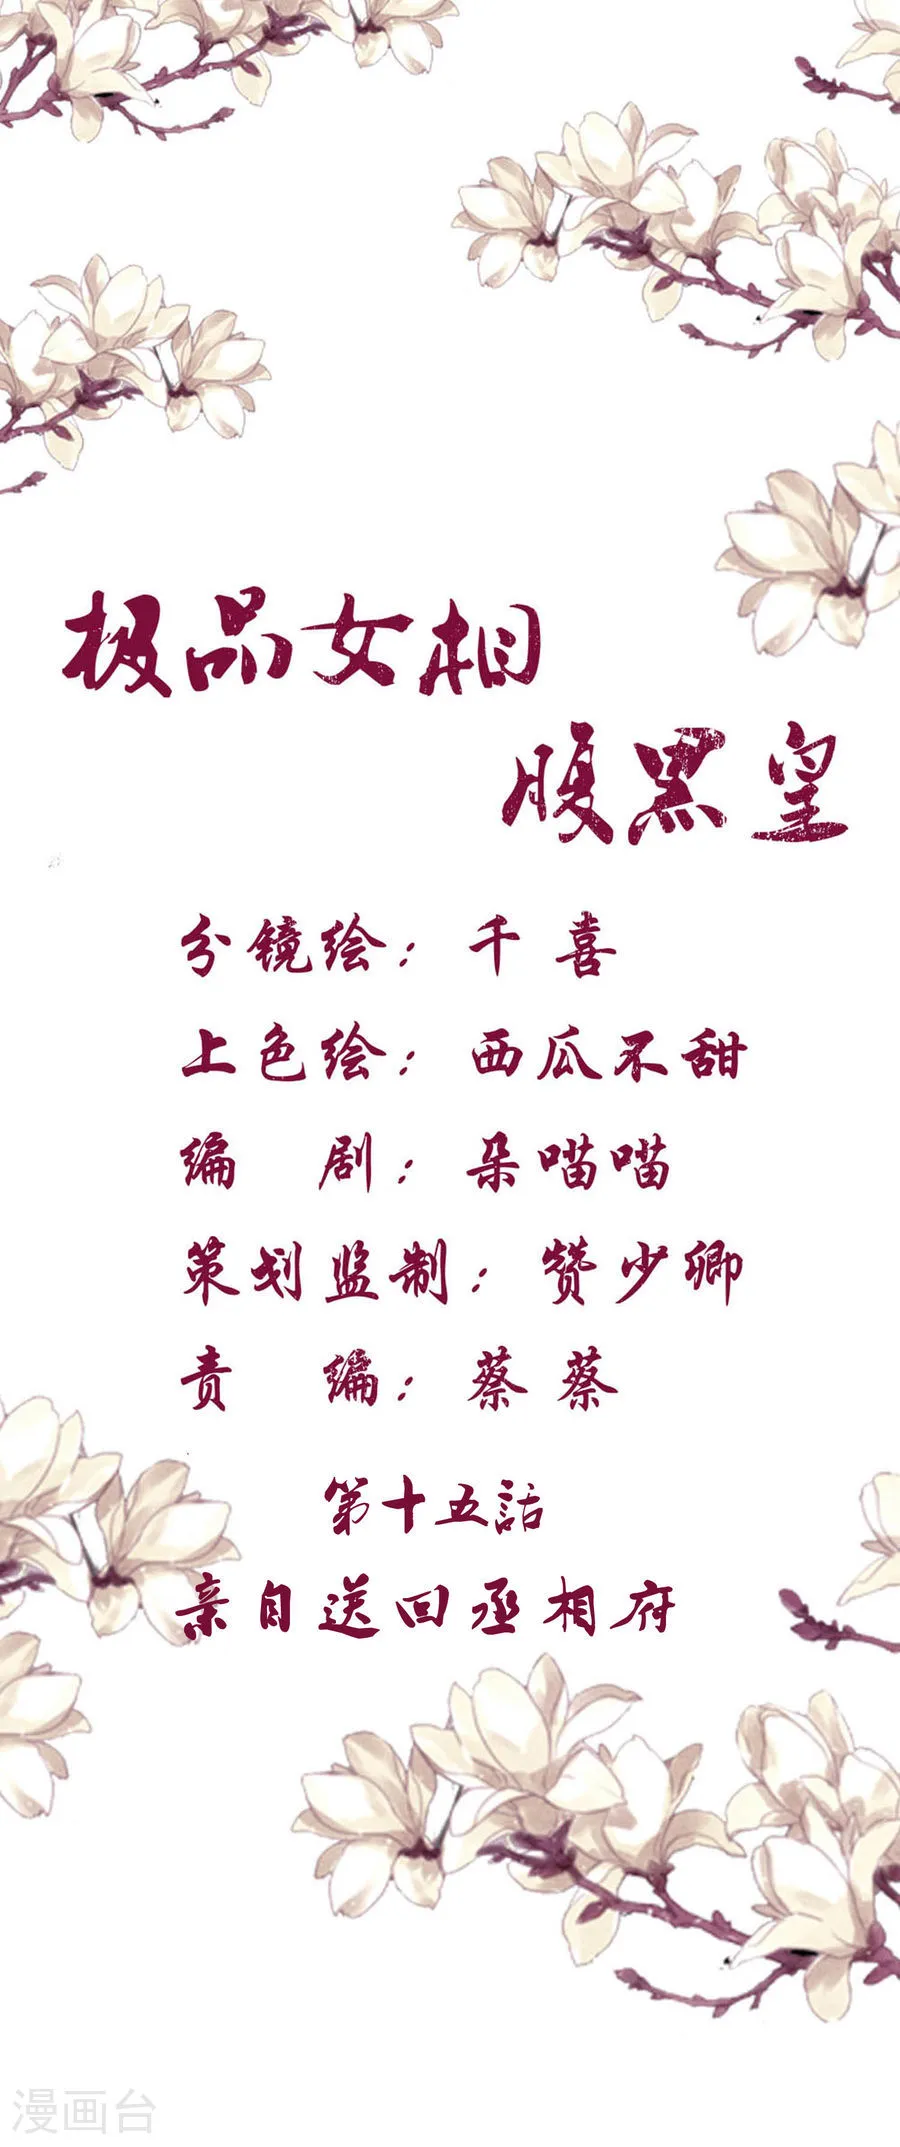 极品女相
腹黑皇
分镜绘：千喜
上色绘：西瓜不甜
编 剧：朵喵喵
策划监制：赞少卿
责 编：蔡蔡
第十五話
亲自送回丞相府
漫画台